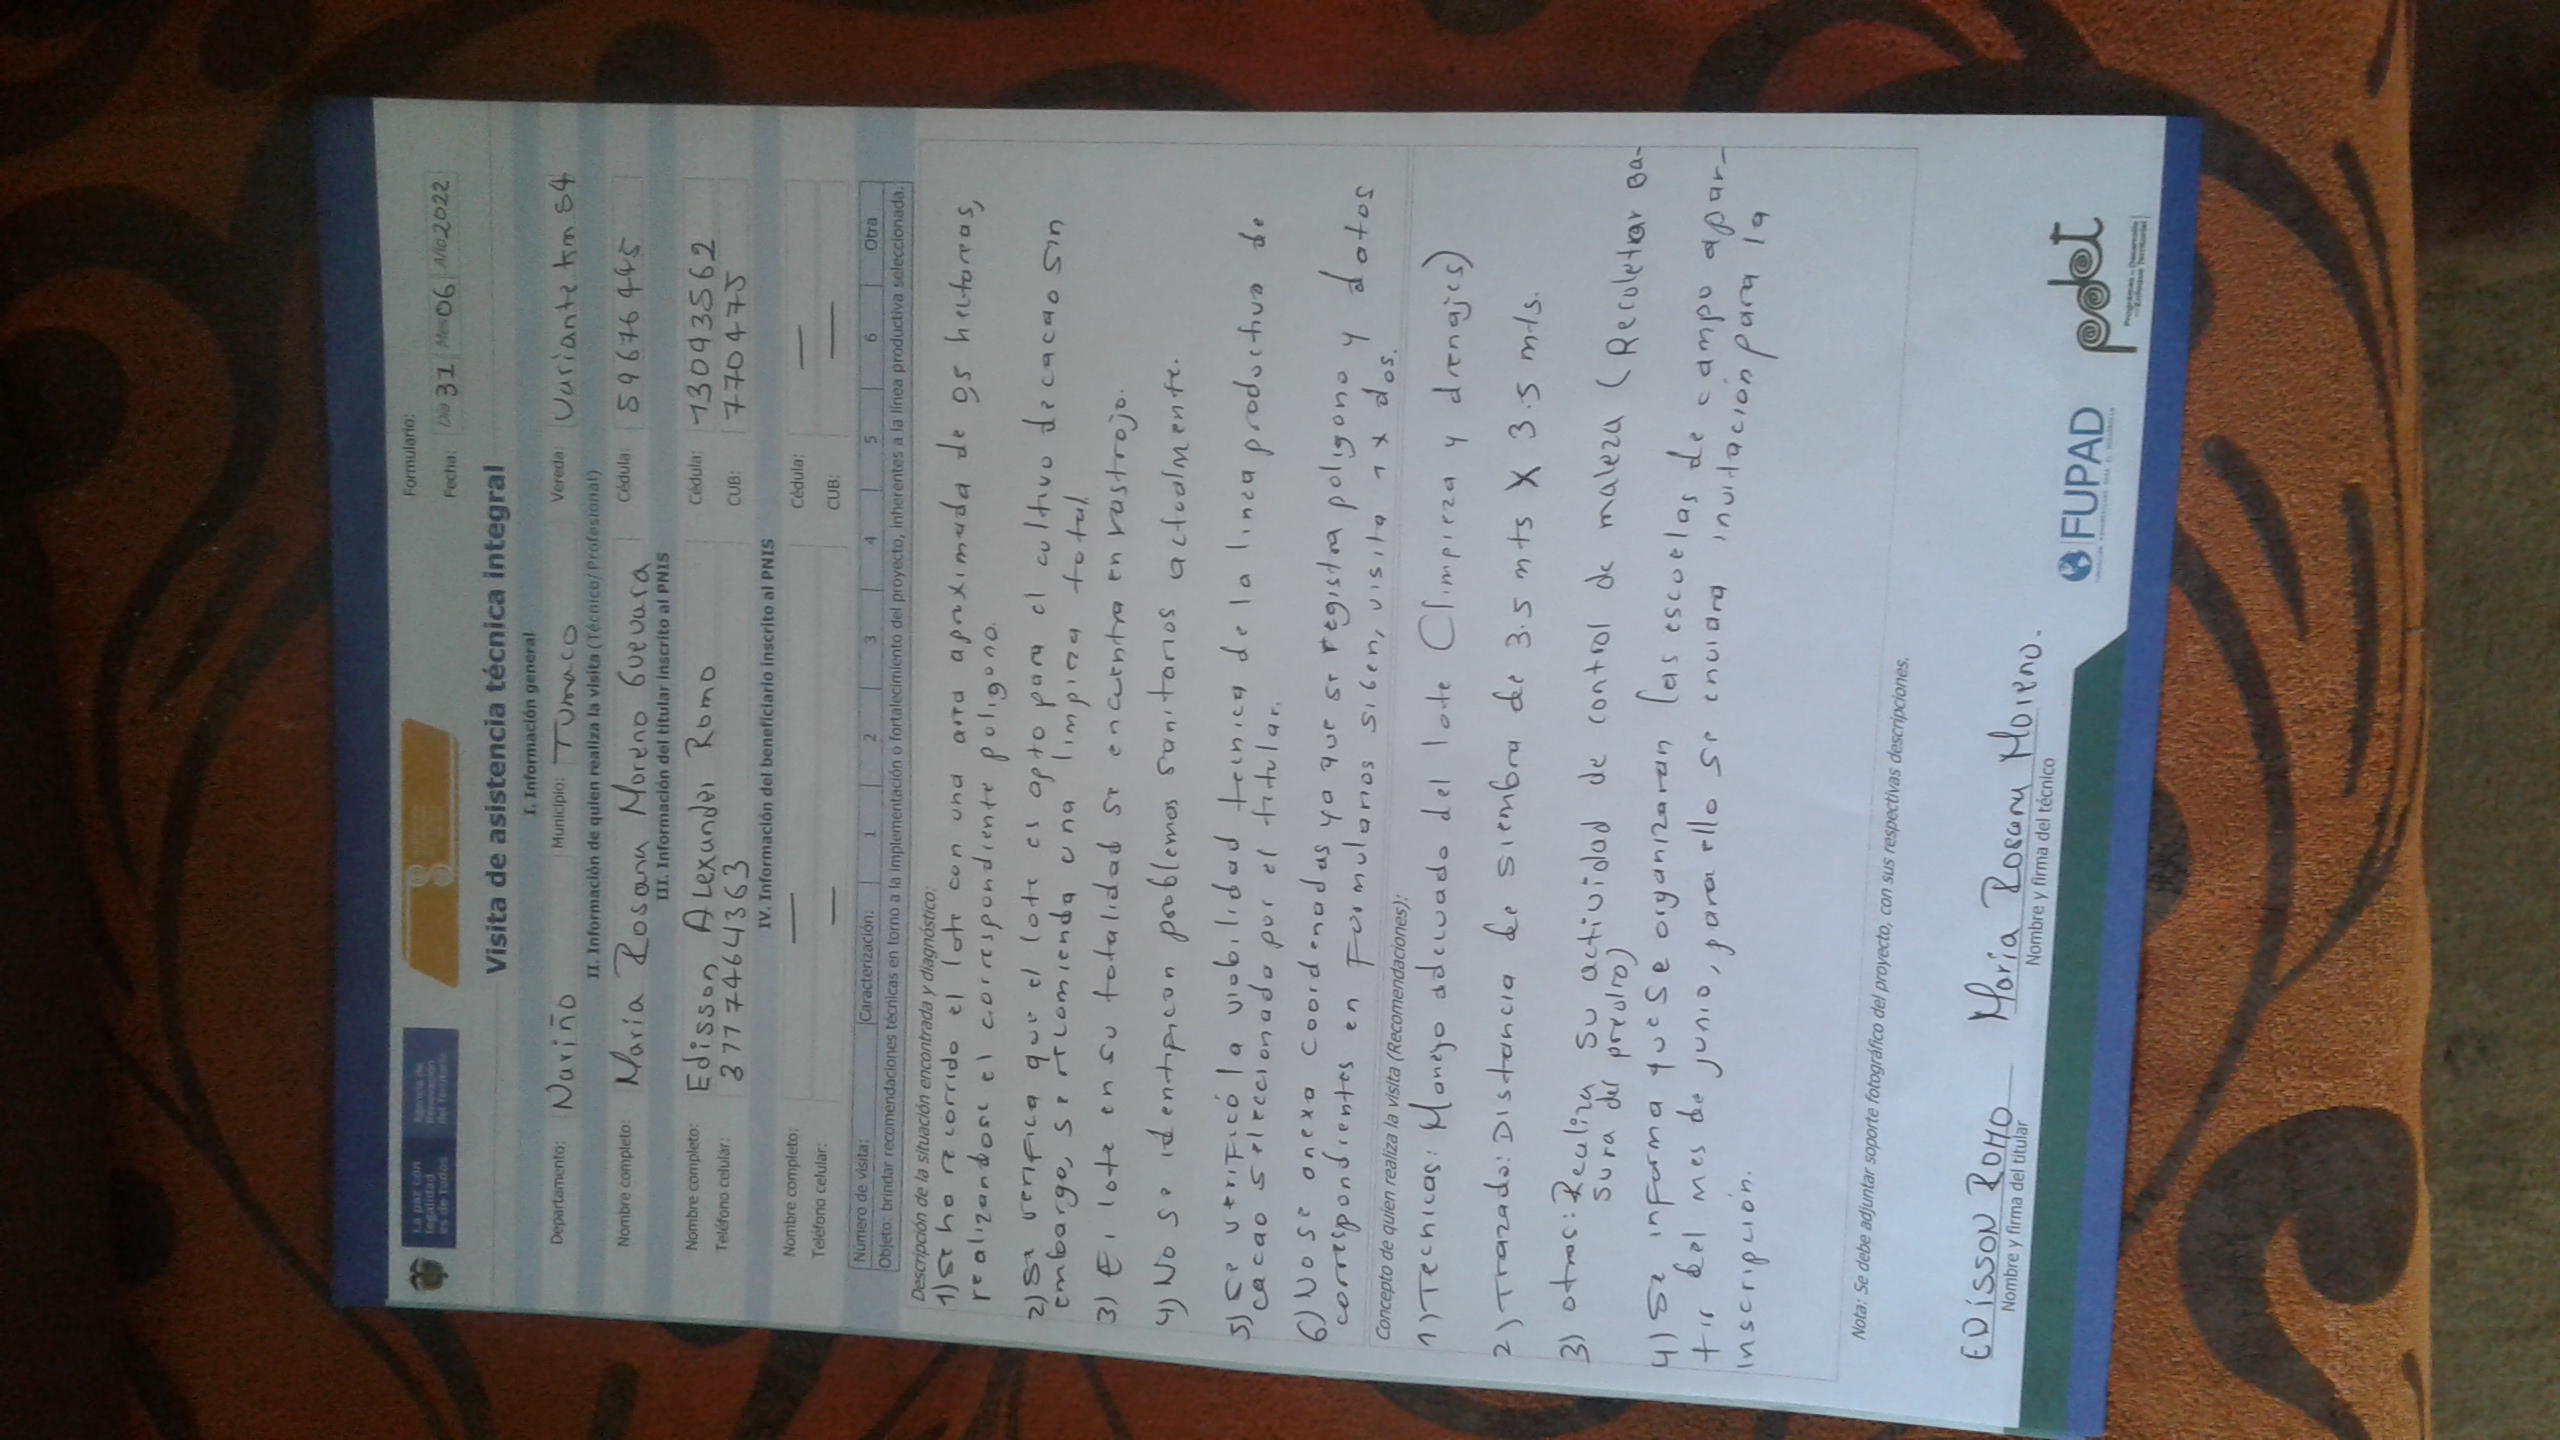 La paz con legalidad es de todos
Agencia de Renovación del Territorio
Formulario:
Fecha: Día 31 Mes 06 Año 2022
Visita de asistencia técnica integral
I. Información general
Departamento: Nariño Municipio: Tumaco Vereda: Variante km 84
II. Información de quien realiza la visita (Técnico/Profesional)
Nombre completo: Maria Rosana Moreno Guevara Cédula: 59676445
III. Información del titular inscrito al PNIS
Nombre completo: Edisson Alexander Romo Cédula: 13043562
Teléfono celular: 3177464363 CUB: 770475
IV. Información del beneficiario inscrito al PNIS
Nombre completo: — Cédula: —
Teléfono celular: — CUB: —
Número de visita: Caracterización: 1 2 3 4 5 6 Otra
Objeto: brindar recomendaciones técnicas en torno a la implementación o fortalecimiento del proyecto, inherentes a la línea productiva seleccionada.
Descripción de la situación encontrada y diagnóstico:
1) se ha recorrido el lote con una area aproximada de 05 hectareas,
realizandose el correspondiente poligono.
2) se verifica que el lote es apto para el cultivo de cacao sin
embargo, se recomienda una limpieza total.
3) El lote en su totalidad se encuentra en rastrojo.
4) No se identifican problemas sanitarios actualmente.
5) se verificó la viabilidad tecnica de la linea productiva de
cacao seleccionado por el titular.
6) No se anexa coordenadas ya que se registra poligono y datos
correspondientes en Formularios sigen, visita 1 x dos.
Concepto de quien realiza la visita (Recomendaciones):
1) Tecnicas: Manejo adecuado del lote (limpieza y drenajes)
2) Trazado: Distancia de siembra de 3.5 mts X 3.5 mts.
3) otras: Realiza su actividad de control de maleza (Recoletar Ba-
sura del predio)
4) Se informa que se organizaran las escuelas de campo apar-
tir del mes de junio, para ello se enviara invitación para la
inscripción.
Nota: Se debe adjuntar soporte fotográfico del proyecto, con sus respectivas descripciones.
EDISSON ROMO Maria Rosana Moreno.
Nombre y firma del titular Nombre y firma del técnico
FUPAD
pdet
Programas de Desarrollo con Enfoque Territorial